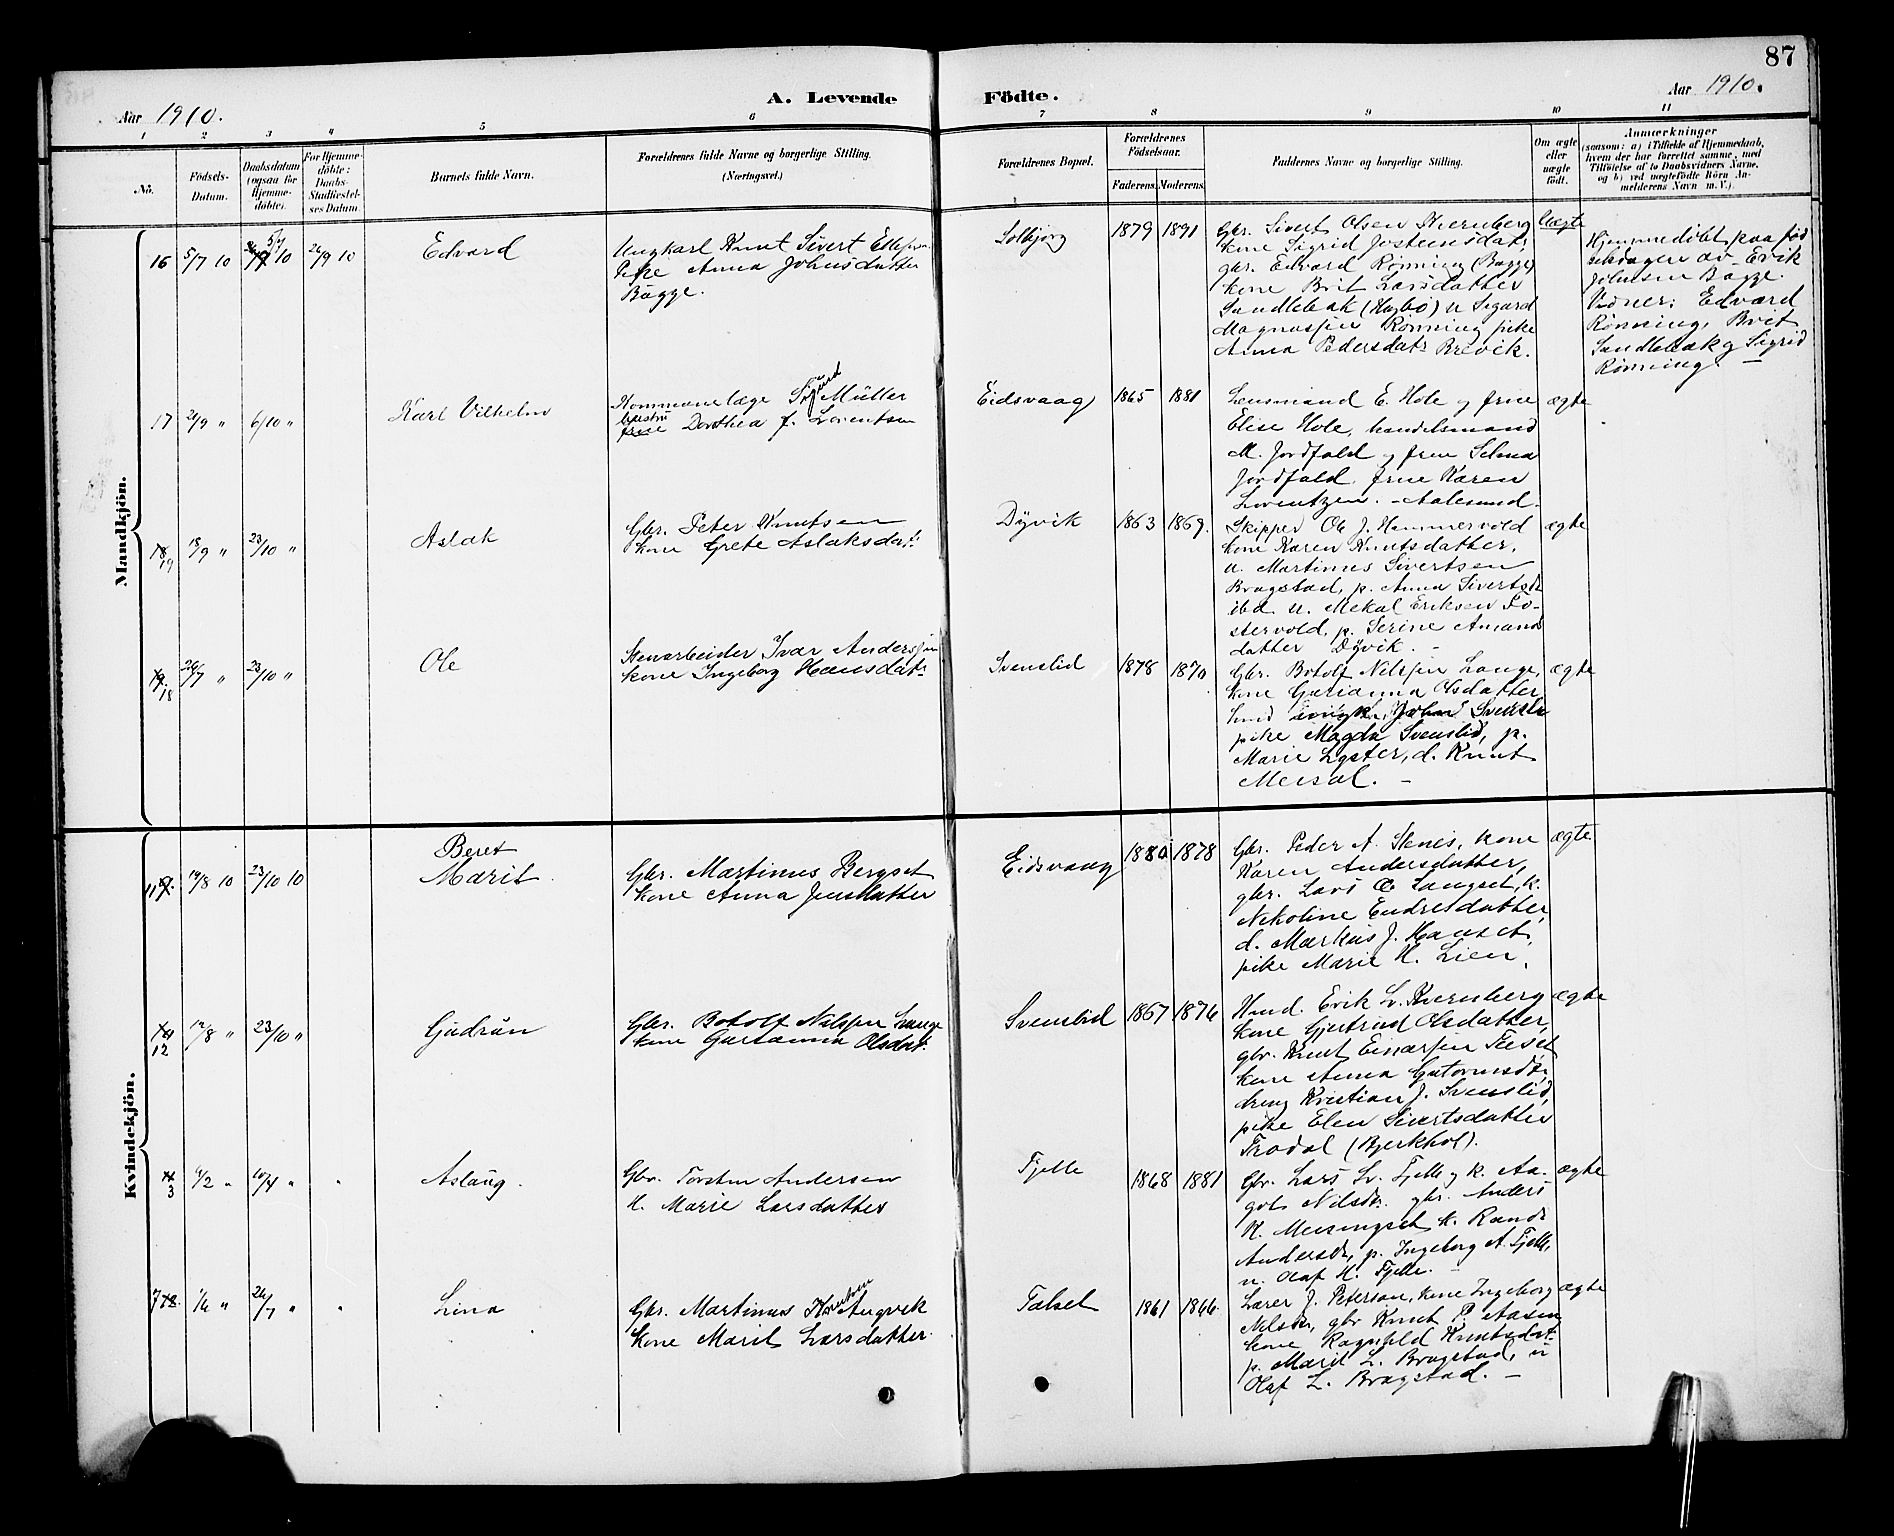 87
Aar 1910.
A. Levende Födte.
Aar 1910.
1 2 3 4 5 6 7 8 9 10 11
No.
Födsels-Datum.
Daabsdatum (ogsaa for Hjemme-döbte).
For Hjemme-döbte: Daabs-Stadfæstelses Datum.
Barnets fulde Navn.
Forældrenes fulde Navne og borgerlige Stilling.
(Næringsvei.)
Forældrenes Bopæl.
Forældrenes Födselsaar.
Faderens. Moderens.
Faddernes Navne og borgerlige Stilling.
Om ægte eller uægte födt.
Anmærkninger
(saasom: a) i Tilfælde af Hjemmedaab,
hvem der har forrettet samme, med
Tilföielse af to Daabsvidners Navne,
og b) ved uægtefödte Börn An-
melderens Navn m. V.).
Mandkjön.
16 5/7 10 5/7 10 24/9 10 Edvard
Ungkarl Knut Sivert
Pike Anna Johnsdatter
Bugge.
Solbjørg 1879 1891
Gbr. Sivert Olsen Kvernberg
kone Sigrid Josteinsdat:
gbr. Edvard Rønning (Bugge)
kone Brit Larsdatter
Sandlebak u Sigurd
Magnussen Rønning pike
Anna Pedersdatr Brevik.
Uægte
Hjemmedøbt paa fød
selsdagen av Erik
Johnsen Bugge.
Vidner: Edvard
Rønning, Brit
Sandlebak og Sigrid
Rønning. —
17 21/9 " 6/10 " Karl Vilhelm
Kommunelæge Sigurd Müller
hustru Dorthea f. Lorentsen
Eidsvaag 1865 1881
Lensmand E. Hole og frue
Elise Hole, handelsmand
M. Jordfald og frue Selma
Jordfald, frue Karen
Lorentzen. - Aalesund.
ægte
18 19 18/9 " 23/10 " Aslak
Gbr. Peter Knutsen
kone Grete Aslaksdat:
Dÿvik 1863 1869.
Skipper Ole J. Hammervold
kone Karen Knutsdatter,
u. Martinus Sivertsen
Bragstad, p. Anna Sivertsdr
ibd. u. Mekal Eriksen To-
stervold, p. Serine Amands
datter Dÿvik. -
ægte
19. 18 26/7 " 23/10 " Ole
Stenarbeider Ivar Anderssen
kone Ingeborg Hansdatr
Svenslid 1878 1870
Gbr. Botolf Nilssen Lange,
kone Gurianna Olsdatter
pike Magda Svenslid, p.
Marie Lyster, d. Knut
Meisal. —
ægte
Kvindekjön.
11 19/8 10 23/10 10 Beret
Marit.
Gbr. Martinus Bergset
kone Anna Jensdatter
Eidsvaag 1880 1878
Gbr. Peder A. Stenes, kone
Karen Andersdatter,
gbr. Lars O. Langset, k.
Nikoline Endresdatter,
d. Markus J. Hauset,
pike Marie H. Lien,
ægte
12 12/8 " 23/10 " Gudrün
Gbr. Botolf Nilssen Lange
kone Gurianna Olsdat.
Svenslid 1867 1876
Husd. Erik Sv. Kvernberg
kone Gjertrud Olsdatter,
gbr. Knut Einarsen Teeset
kone Anna Gutormsdr,
dreng Kristian J. Svenslid,
pike Elen Sivertsdatter
Trodal (Bjerkhol).
ægte
3 6/2 " 10/4 " " Aslaüg.
Gbr. Torsten Andersen
K. Marie Larsdatter
Tjelle 1868 1881
Gbr. Lars Sv. Tjelle og k. Aa-
got Nilsdr. gbr. Anders
H. Meisingset k. Randi
Andersdr, p. Ingeborg A. Tjelle,
u. Olaf H. Tjelle. —
ægte
7 1/6 " 24/7 " " Lina
Gbr. Martinus Knutsen Angvik
kone Marit Larsdatter.
Talset 1861 1866.
Lærer J. Peterson, kone Ingeborg
Nilsdr, gbr Knut P. Aasen
kone Ragnhild Knutsdat.
p. Marit L. Bragstad, u
Olaf L. Bragstad. —
ægte